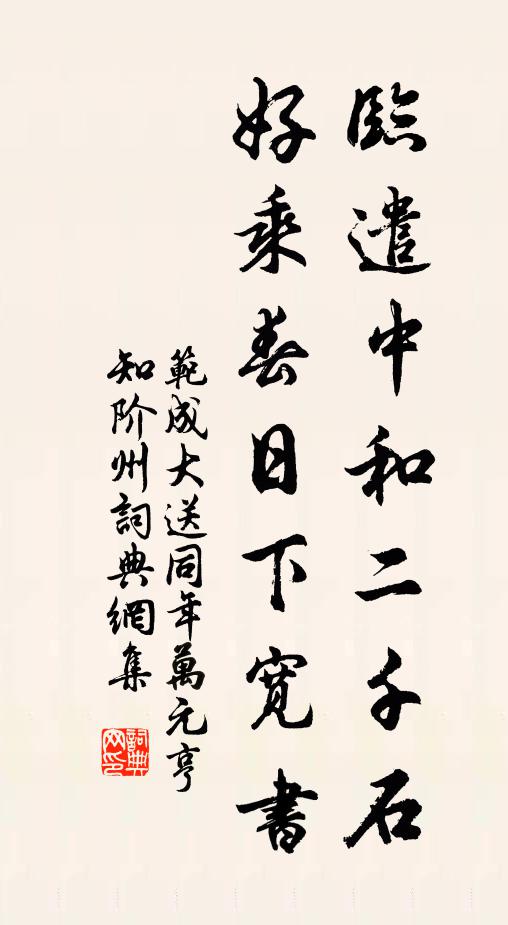 臨遣中和二千石
好乘春日下寬書
範成大送同年萬元亨
知阶州詞典網集
詞典网印